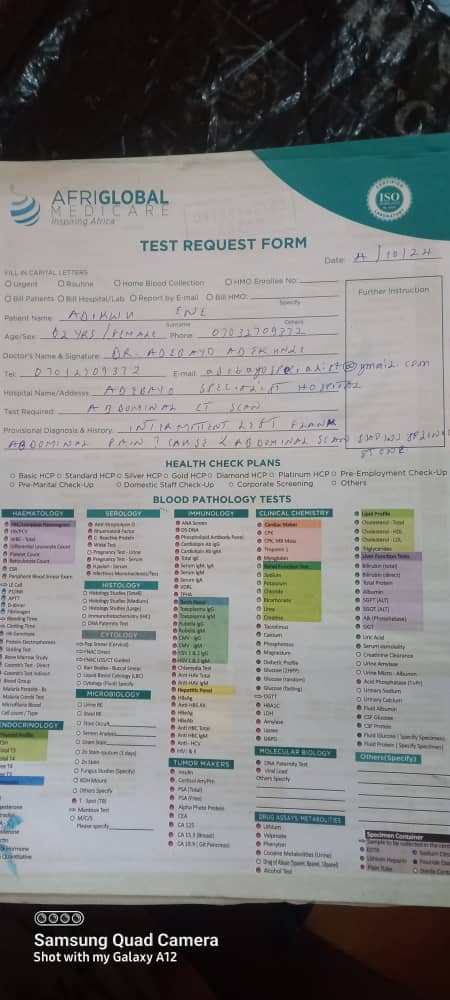 AFRIGLOBAL
MEDICARE
Inspiring Africa
CERTIFIED
ISO
TEST REQUEST FORM
Date: 4/10/24
FILL IN CAPITAL LETTERS
Urgent Routine Home Blood Collection HMO Enrollee No:
Bill Patients Bill Hospital/Lab Report by E-mail Bill HMO: Specify
Further Instruction
Patient Name: ADIKWU ENE
Surname Others
Age/Sex: 62 YRS / FEMALE Phone: 07032709372
Doctor's Name & Signature: DR. ADEBAYO
Tel: 07012709372 E-mail: @gmail.com
Hospital Name/Address: ADEBAYO SPECIALIST HOSPITAL
Test Required: ABDOMINAL CT SCAN
Provisional Diagnosis & History: INTERMITTENT LEFT FLANK
ABDOMINAL PAIN ? CAUSE ABDOMINAL SCAN
STONE
HEALTH CHECK PLANS
Basic HCP Standard HCP Silver HCP Gold HCP Diamond HCP Platinum HCP Pre-Employment Check-Up
Pre-Marital Check-Up Domestic Staff Check-Up Corporate Screening Others
BLOOD PATHOLOGY TESTS
HAEMATOLOGY
PCV
WBC - Total
Differential Leucocyte Count
Platelet Count
Reticulocyte Count
ESR
Peripheral Blood Smear Exam
LE Cell
PT/INR
APTT
D-dimer
Fibrinogen
Bleeding Time
Clotting Time
HB Genotype
Protein Electrophoresis
Sickling Test
Bone Marrow Study
Coomb's Test - Direct
Coomb's Test Indirect
Blood Group
Malaria Parasite - Bs
Malaria Combi Test
Microfilaria Blood
Cell count / Type
ENDOCRINOLOGY
SEROLOGY
Anti Streptolysin O
Rheumatoid Factor
C. Reactive Protein
Widal Test
Pregnancy Test - Urine
Pregnancy Test - Serum
H.pylori - Serum
Infectious Mononucleosis/Test
HISTOLOGY
Histology Studies (Small)
Histology Studies (Medium)
Histology Studies (Large)
Immunohistochemistry (IHC)
DNA Paternity Test
CYTOLOGY
Pap Smear (Cervical)
FNAC Direct
FNAC US/CT Guided
Barr Bodies - Buccal Smear
Liquid Based Cytology (LBC)
Cytology (Fluid) Specify
MICROBIOLOGY
Urine RE
Stool RE
Stool Occult
Semen Analysis
Gram Stain
Zn Stain-sputum (3 days)
Zn Stain
Fungus Studies (Specify)
KOH Mount
Others Specify
T - Spot (TB)
Mantoux Test
M/C/S
Please specify
IMMUNOLOGY
ANA Screen
DS-DNA
Phospholipid Antibody Panel
Cardiolipin Ab IgG
Cardiolipin Ab IgM
Total IgE
Serum IgM, IgA
Serum IgM
Serum IgA
VDRL
TPHA
Torch Panel
Toxoplasma IgG
Toxoplasma IgM
Rubella IgG
Rubella IgM
CMV - IgG
CMV - IgM
HSV 1 & 2 IgG
HSV 1 & 2 IgM
Chlamydia Test
Anti HAV Total
Anti HAV IgM
Hepatitis Panel
HBsAg
Anti HBS Ab
HBeAg
HBeAb
Anti HBC Total
Anti HBC IgM
Anti - HCV
HIV I & II
TUMOR MARKERS
Insulin
Cortisol Am/Pm
PSA (Total)
PSA (Free)
Alpha Photo Protein
CEA
CA 125
CA 15.3 (Breast)
CA 19.9 ( GIt Pancreas)
CLINICAL CHEMISTRY
Cardiac Maker
CPK
CPK, MB Mass
Troponin I
Myoglobin
Renal Function Test
Sodium
Potassium
Chloride
Bicarbonate
Urea
Creatine
Calcium
Phosphorous
Magnesium
Diabetic Profile
Glucose (2HPP)
Glucose (random)
Glucose (fasting)
OGTT
HBA1C
LDH
Amylase
Lipase
G6PD
MOLECULAR BIOLOGY
DNA Paternity Test
Viral Load
Others Specify
DRUG ASSAYS/METABOLITIES
Lithium
Valproate
Phenytoin
Cocaine Metabolities (Urine)
Alcohol Test
Lipid Profile
Cholesterol - Total
Cholesterol - HDL
Cholesterol - LDL
Triglycerides
Liver Function Tests
Bilirubin (total)
Bilirubin (direct)
Total Protein
Albumin
SGPT (ALT)
SGOT (ALT)
Alk (Phosphatase)
GGT
Uric Acid
Serum osmolality
Creatinine Clearance
Urine Amylase
Urine Micro - Albumin
Acid Phosphatase (T+Pr)
Urinary Sodium
Urinary Calcium
Fluid Albumin
CSF Glucose
CSF Protein
Fluid Glucose ( Specify Specimen)
Fluid Protein ( Specify Specimen)
Others(Specify)
Specimen Container
EDTA
Lithium Heparin
Plain Tube
Samsung Quad Camera
Shot with my Galaxy A12